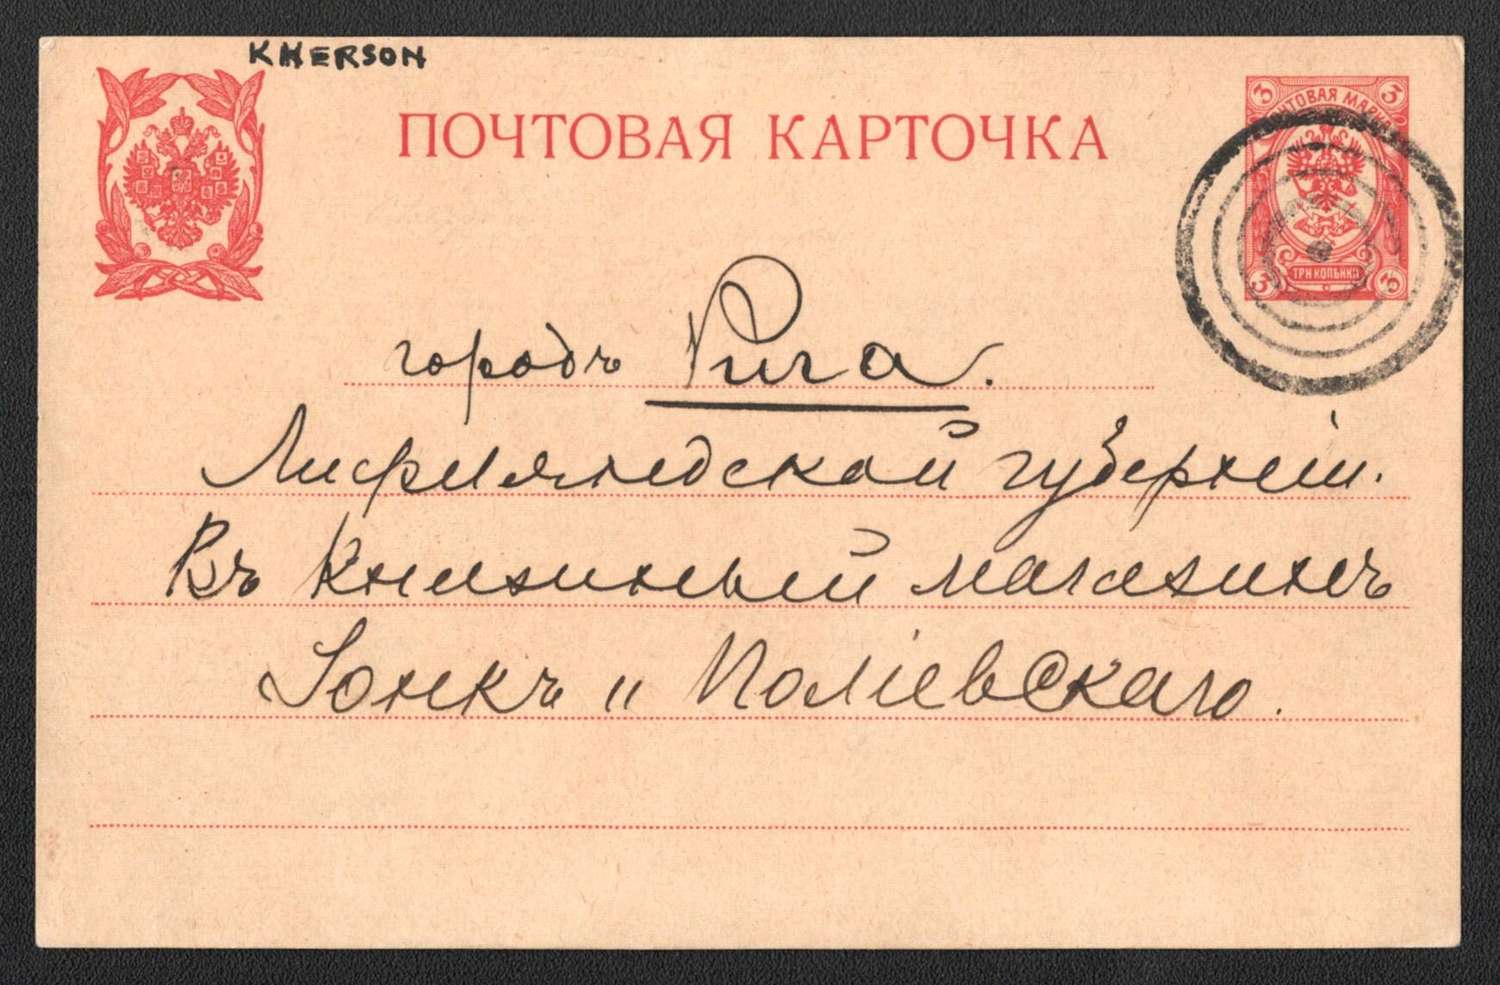 KHERSON
ПОЧТОВАЯ КАРТОЧКА
3 ПОЧТОВАЯ МАРКА 3
ТРИ КОПѢЙКИ
3 3
городъ Рига.
Лифляндской губерніи.
Въ книжный магазинъ
Іонкъ и Поліевскаго.